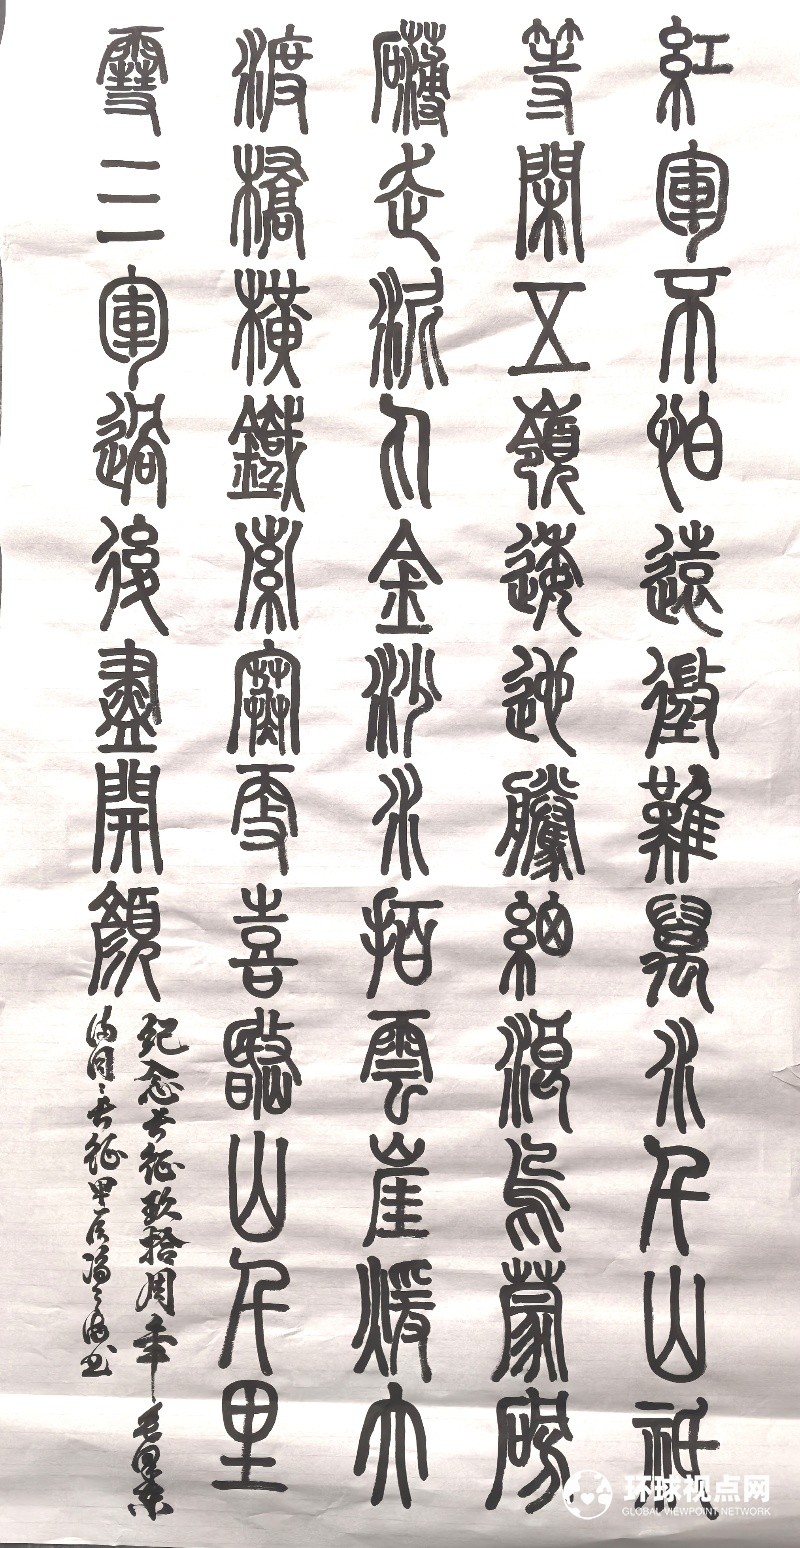 紅軍不怕遠徵難萬水千山祇
等閑五嶺逶迤騰細浪烏蒙磅
礴走泥丸金沙水拍雲崖暖大
渡橋橫鐵索寒更喜岷山千里
雪三軍過後盡開顏
紀念长征玖拾周年 毛澤東
长征 甲辰 书
环球视点网
GLOBAL VIEWPOINT NETWORK